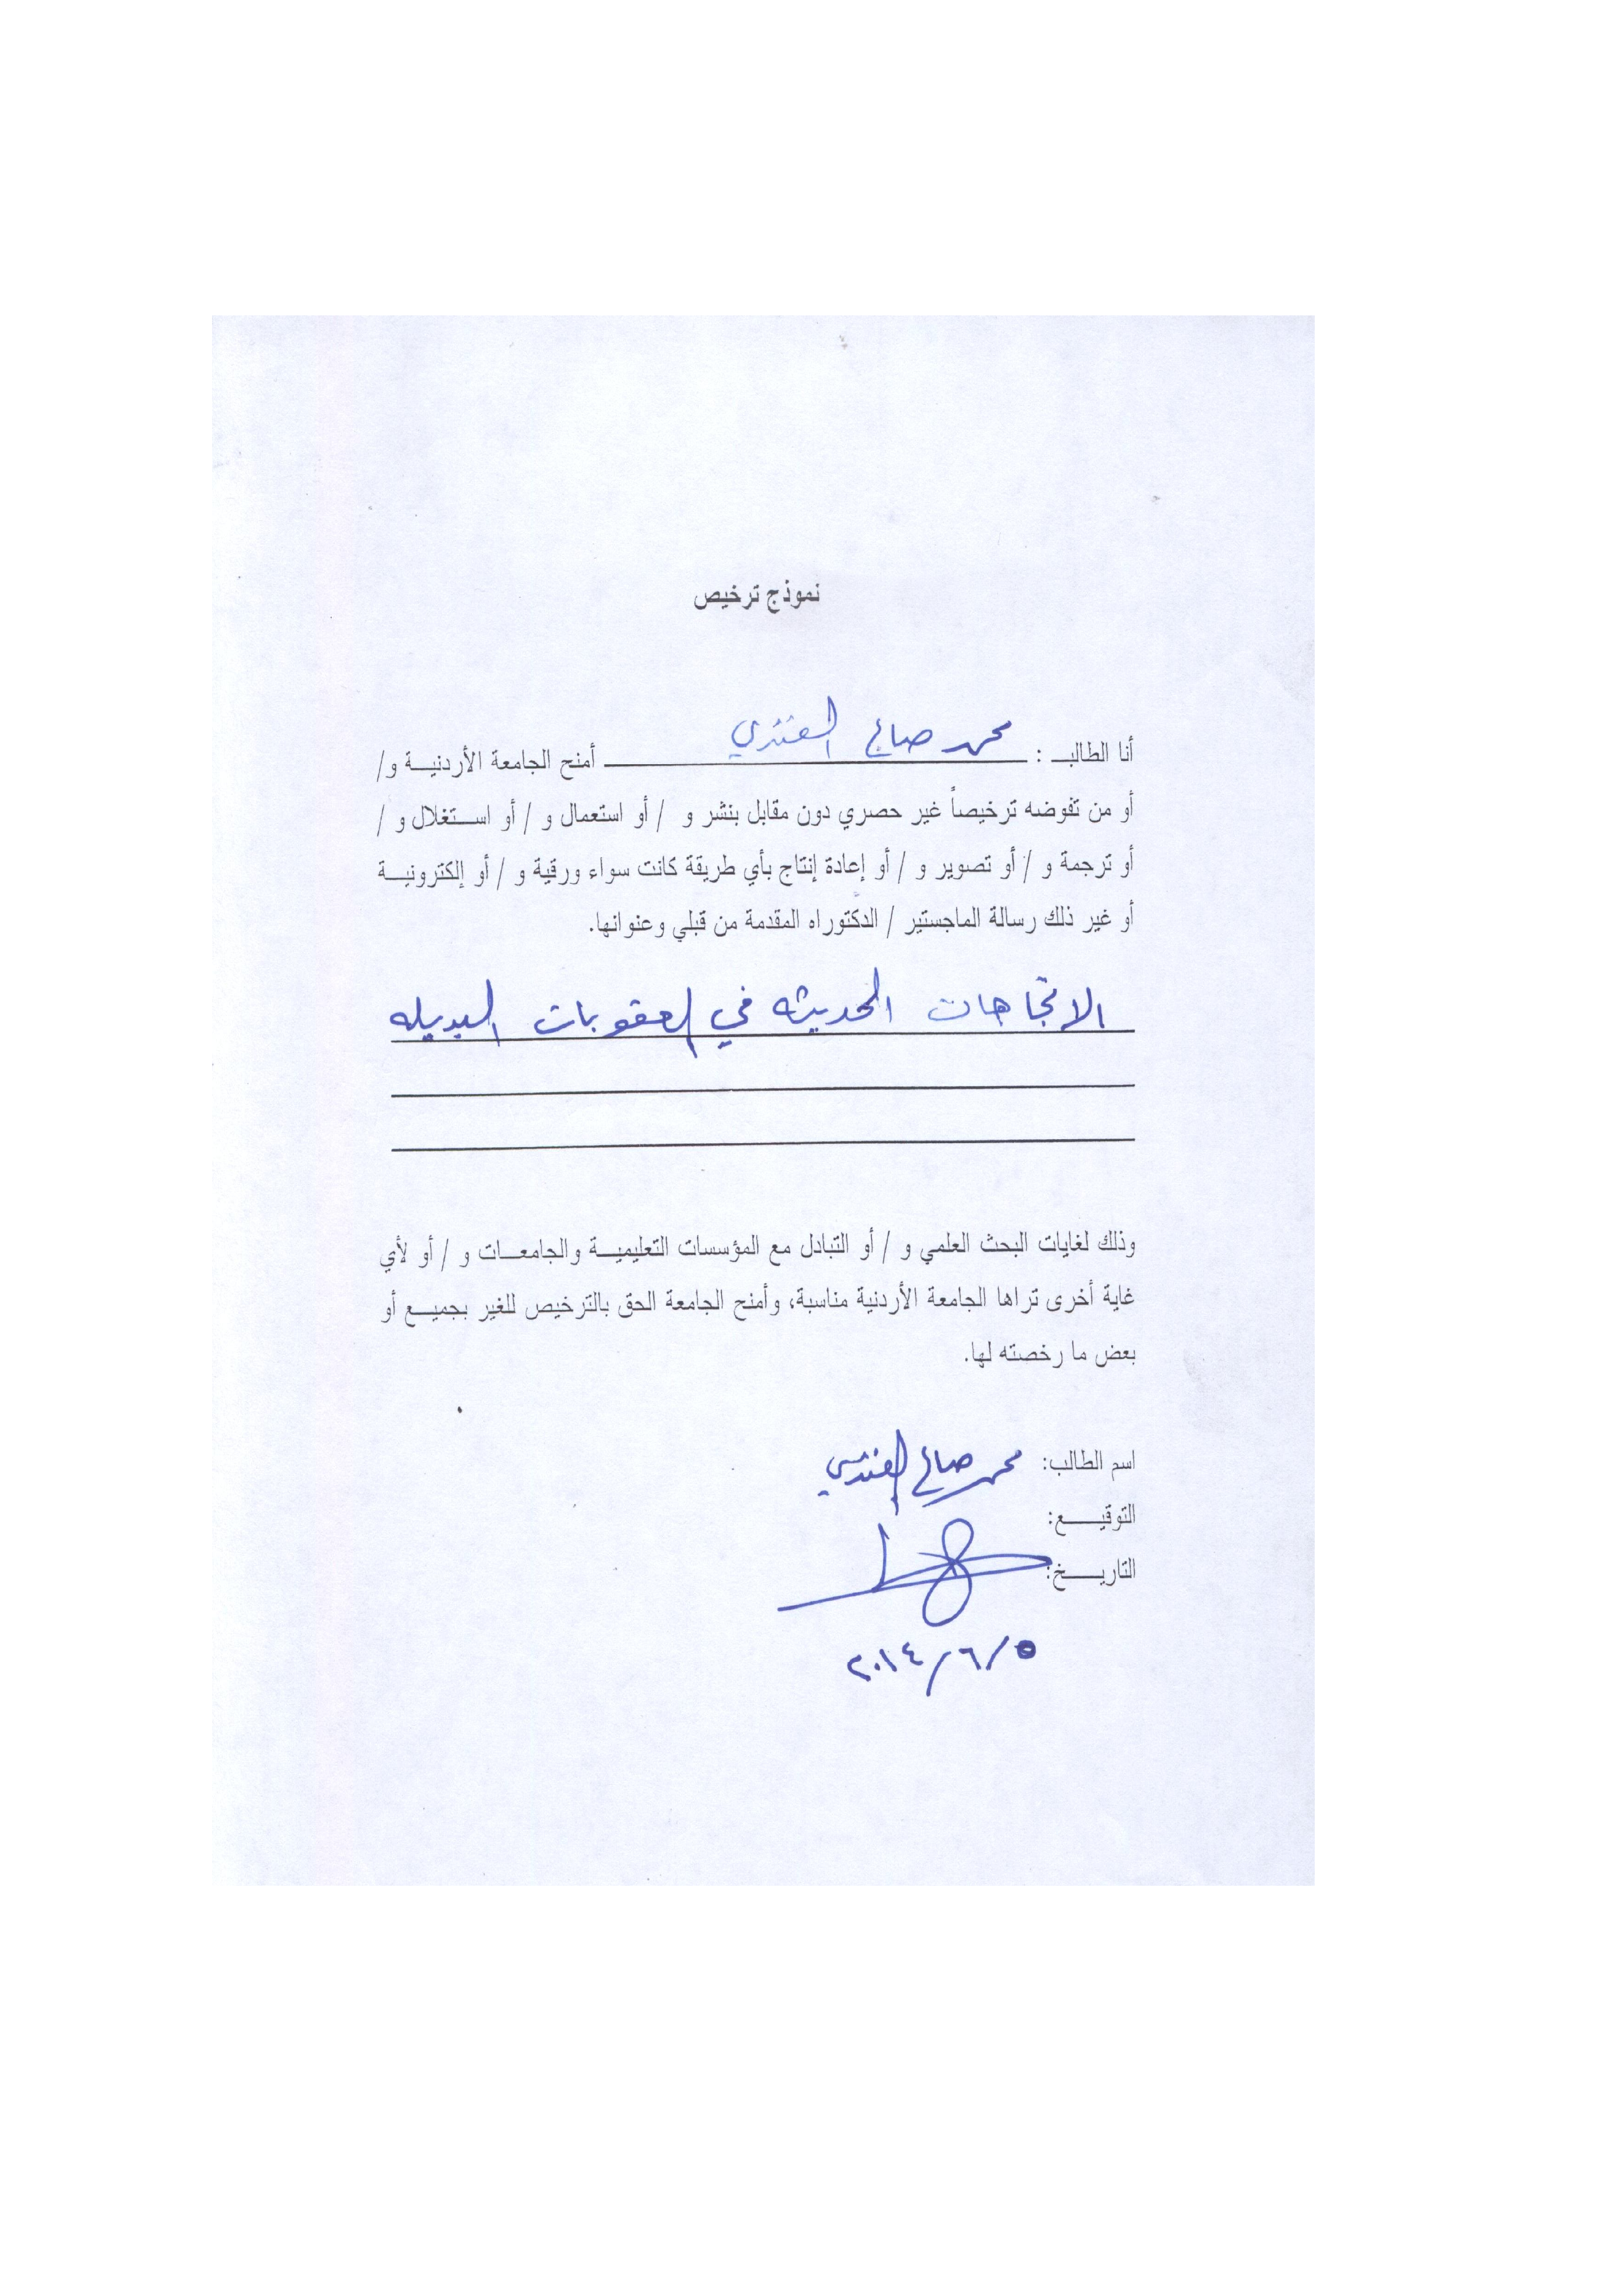 نموذج ترخيص
أنا الطالب : محمد صالح العنزي أمنح الجامعة الأردنية و/
أو من تفوضه ترخيصاً غير حصري دون مقابل بنشر و / أو استعمال و / أو استغلال و /
أو ترجمة و / أو تصوير و / أو إعادة إنتاج بأي طريقة كانت سواء ورقية و / أو إلكترونية
أو غير ذلك رسالة الماجستير / الدكتوراه المقدمة من قبلي وعنوانها.
الاتجاهات الحديثه في العقوبات البديله
وذلك لغايات البحث العلمي و / أو التبادل مع المؤسسات التعليمية والجامعات و / أو لأي
غاية أخرى تراها الجامعة الأردنية مناسبة، وأمنح الجامعة الحق بالترخيص للغير بجميع أو
بعض ما رخصته لها.
اسم الطالب: محمد صالح العنزي
التوقيع:
التاريخ:
٢٠١٤/٦/٥